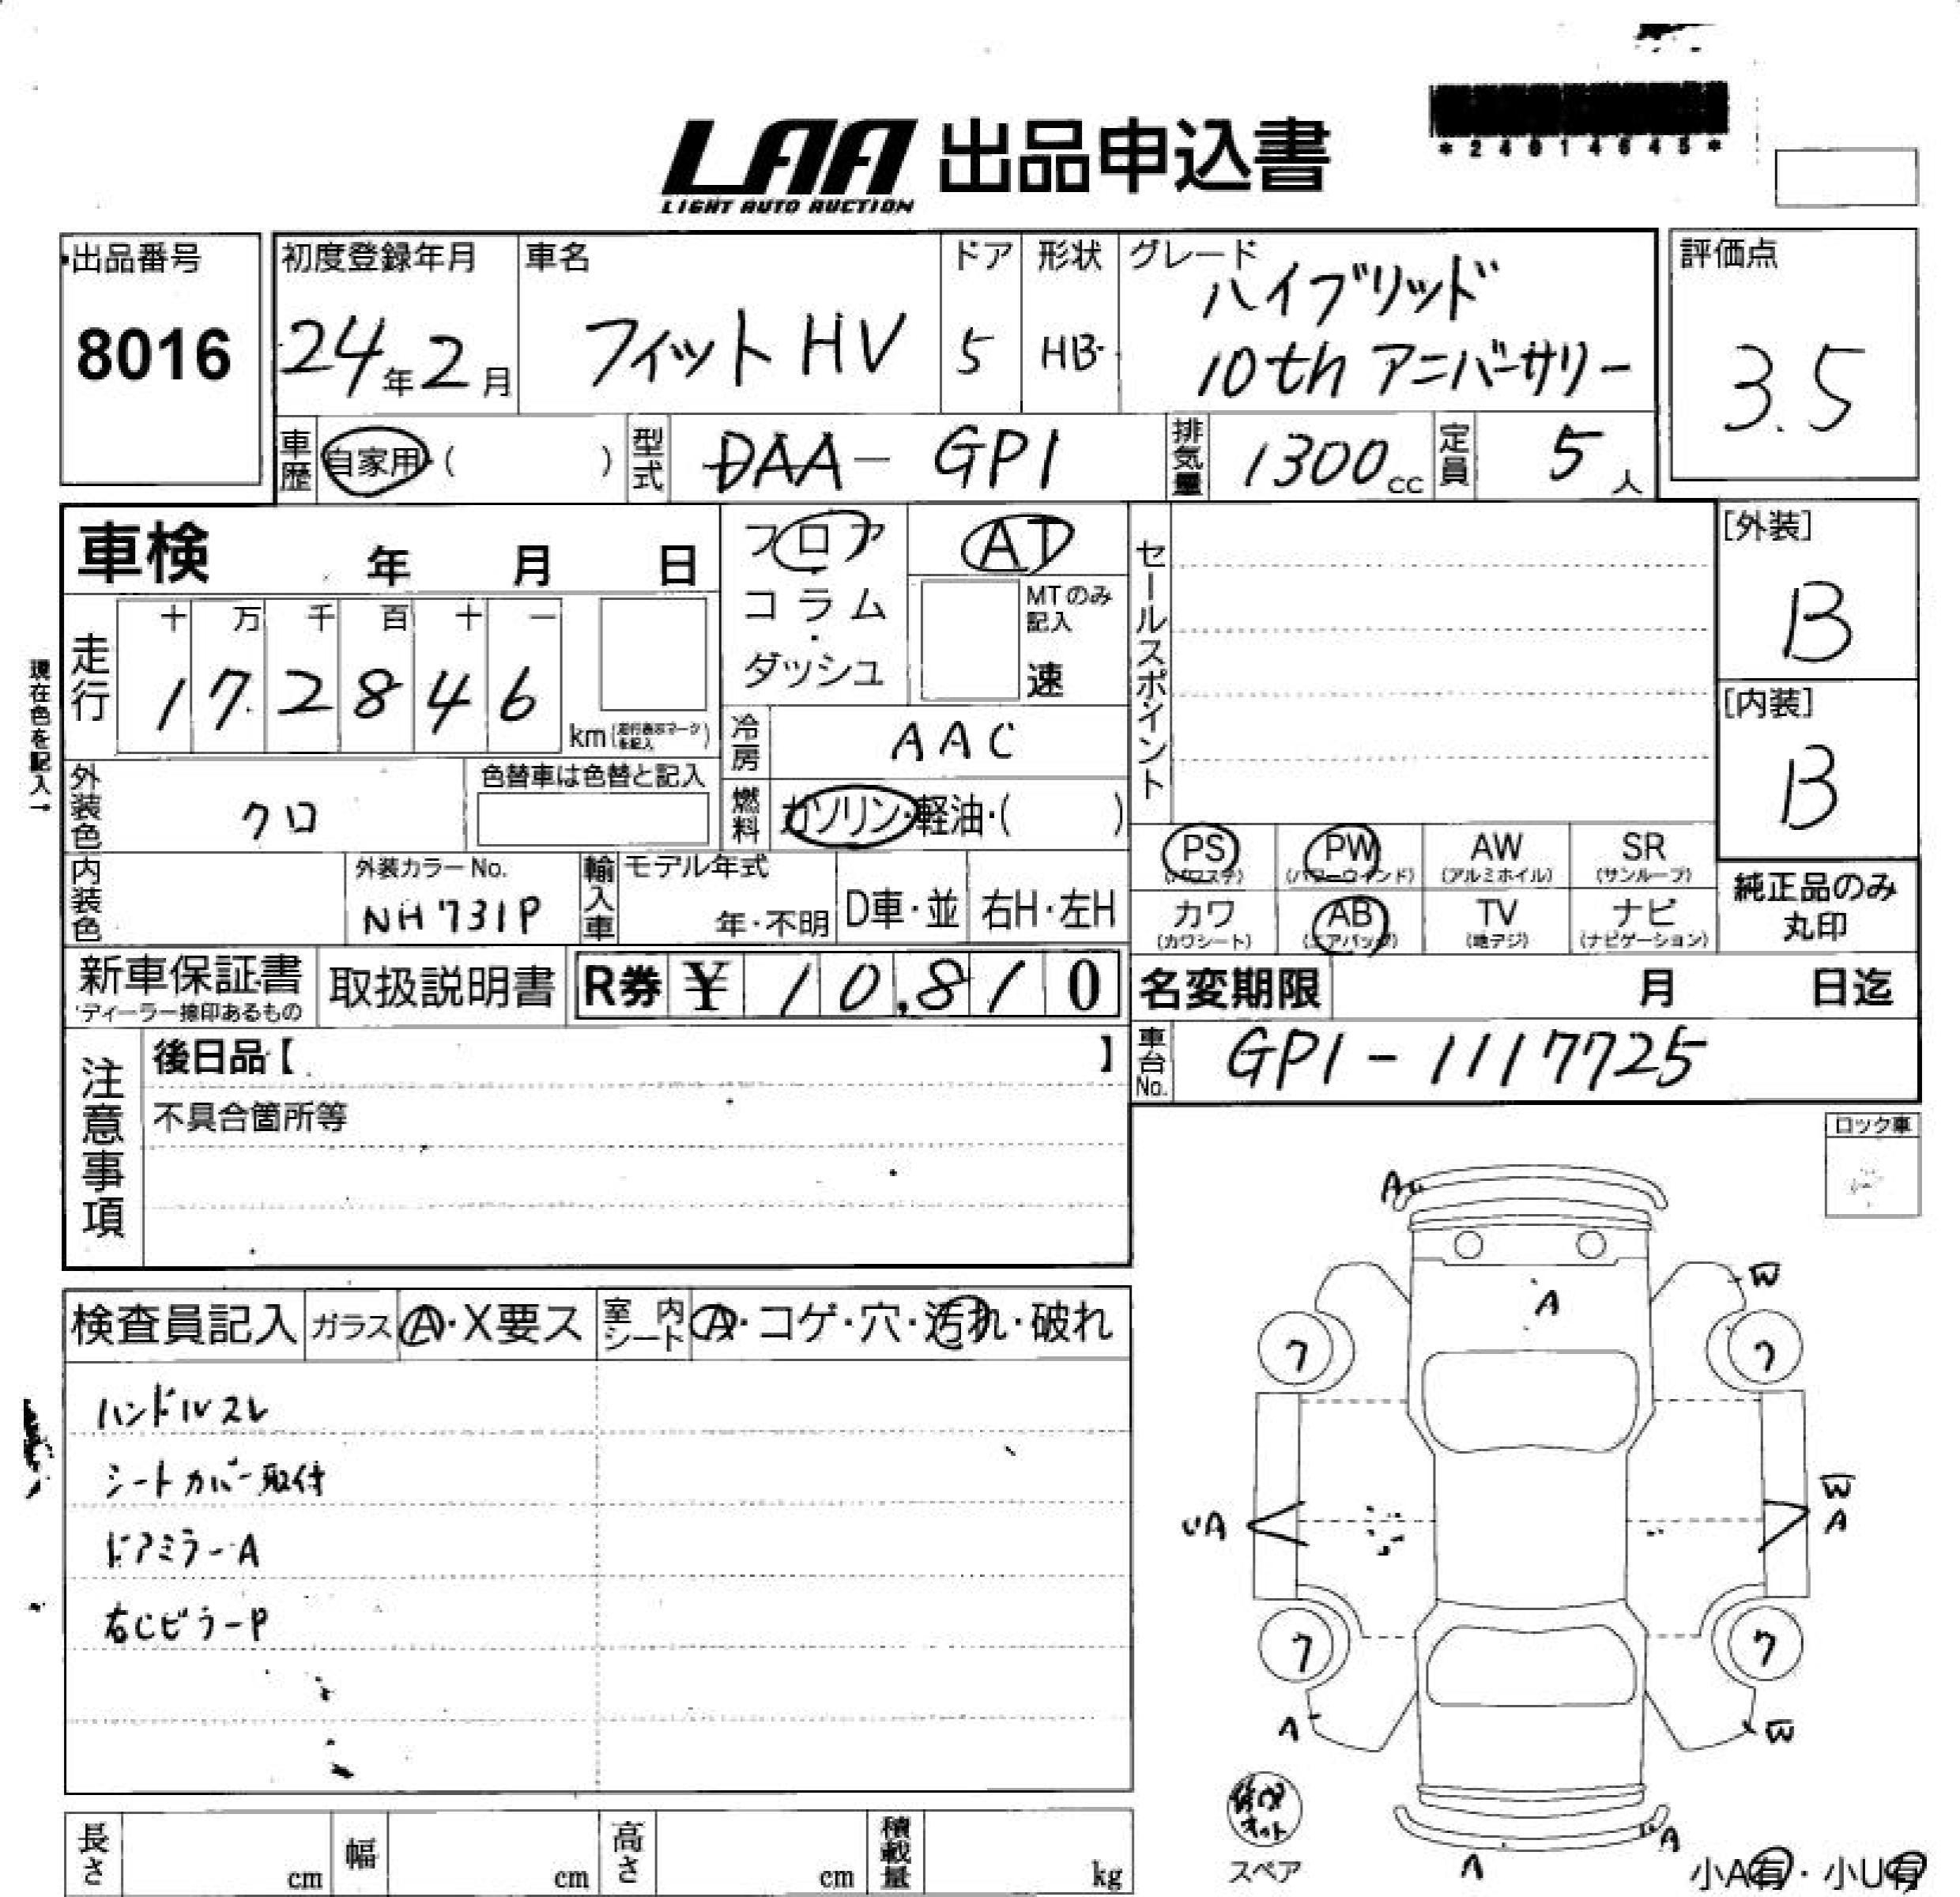 LAA 出品申込書
LIGHT AUTO AUCTION
*24014645*
出品番号
8016
初度登録年月
24年2月
車名
フィット HV
ドア
5
形状
HB
グレード
ハイブリッド
10th アニバーサリー
評価点
3.5
車歴
自家用・( )
型式
DAA- GP1
排気量
1300cc
定員
5人
車検 年 月 日
フロア
・
コラム
・
ダッシュ
AT
MTのみ
記入
速
セールスポイント
[外装]
B
[内装]
B
現在色を記入→
走行
十 万 千 百 十 一
1 7 2 8 4 6
km(走行表示マークを記入)
冷房
AAC
外装色
クロ
色替車は色替と記入
燃料
ガソリン・軽油・( )
PS
(パワステ)
PW
(パワーウインド)
AW
(アルミホイル)
SR
(サンルーフ)
カワ
(カワシート)
AB
(エアバッグ)
TV
(地デジ)
ナビ
(ナビゲーション)
純正品のみ
丸印
内装色
外装カラーNo.
NH731P
輸入車
モデル年式
年・不明
D車・並
右H・左H
新車保証書
ディーラー捺印あるもの
取扱説明書
R券 ¥ 10,810
名変期限 月 日迄
車台No.
GP1-1117725
注意事項
後日品【 】
不具合箇所等
ロック車
検査員記入
ガラス
A・X要ス
室内
シート
A・コゲ・穴・汚れ・破れ
ハンドルスレ
シートカバー取付
ドアミラーA
右CピラーP
A
W
A
フ
フ
UA
W
A
フ
フ
A
W
A
A
スペア
小A有・小U有
長さ cm
幅 cm
高さ cm
積載量 kg